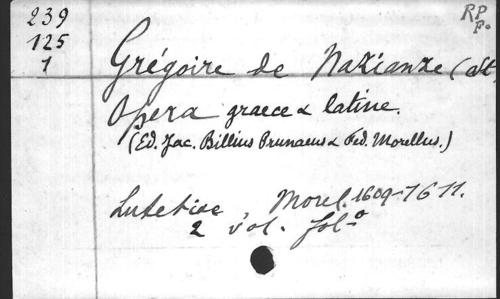 239
125
1
RP
P.
Grégoire de Nazianze (St
Opera graece & latine.
(Ed. Jac. Billius Prunaeus & Fed. Morellus.)
Lutetiae Morel. 1609-1611.
2 vol. fol°